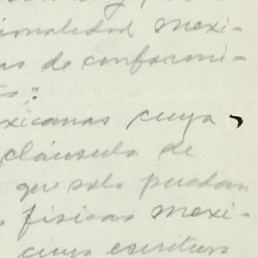 ionalidad mexi-
as de conformi-
o:
xicanas cuya
cláusula de
que solo puedan
s físicas mexi-
cuya escritura